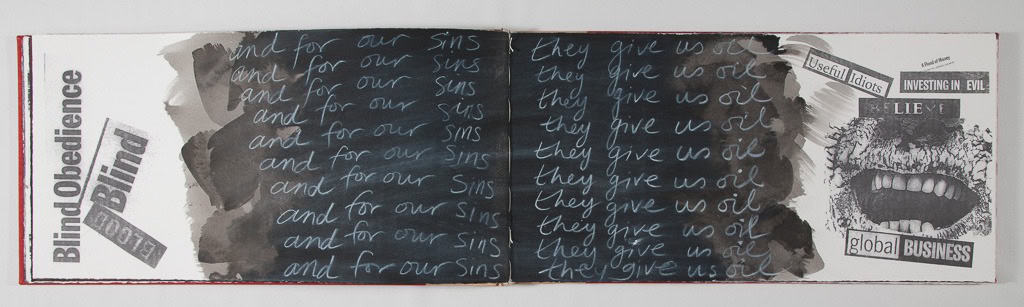 Blind Obedience
Blind
BLOOD
and for our sins
and for our sins
and for our sins
and for our sins
and for our sins
and for our sins
and for our sins
and for our sins
and for our sins
and for our sins
they give us oil
they give us oil
they give us oil
they give us oil
they give us oil
they give us oil
they give us oil
they give us oil
they give us oil
they give us oil
Useful Idiots
A Flood of Money
INVESTING IN EVIL
BELIEVE
global BUSINESS